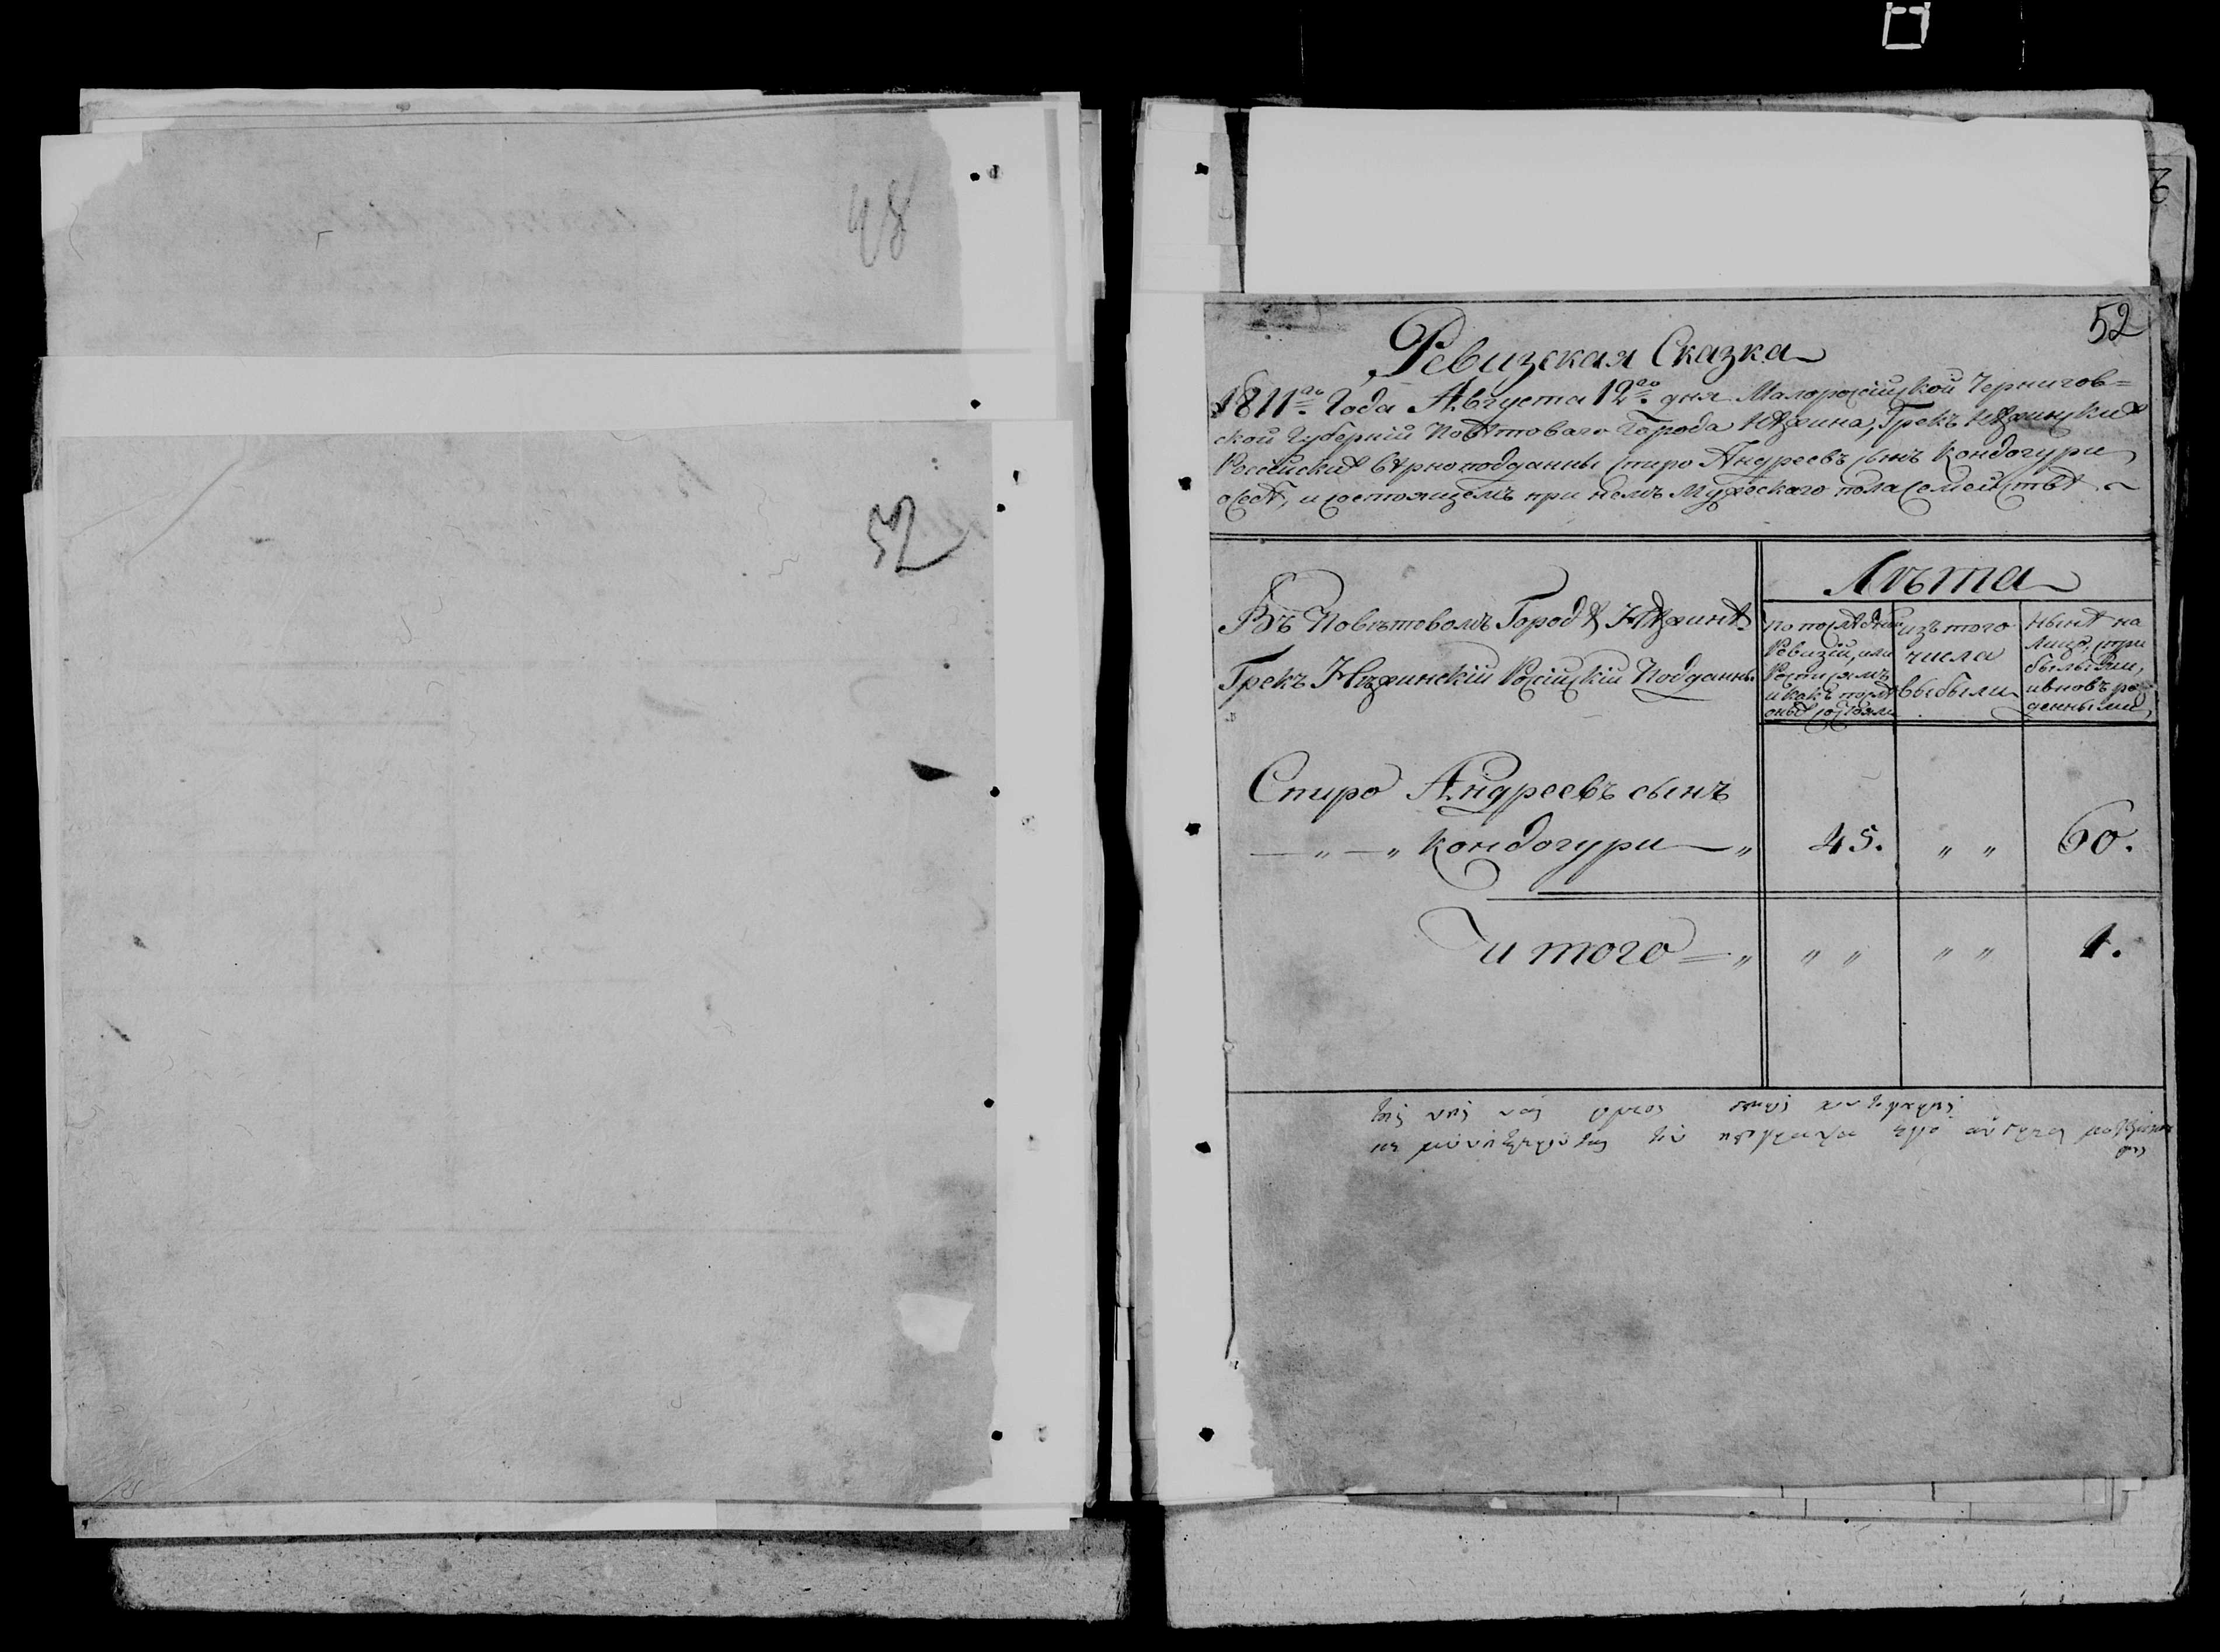 48
52
52
Ревизская Сказка
1811го. Года Августа 12го. дня Малороссійской Чернигов=
ской Губерніи Повѣтоваго Города Нѣжина, Грекъ Нѣжинскій
Россійскій вѣрноподданны Спиро Андреевъ сынъ Кондогури
о себѣ, и состоящемъ при немъ Мужескаго пола Семействѣ
Лѣта
Въ Повѣтовомъ Городѣ Нѣжинѣ
Грекъ Нѣжинскій Російскій Подданны
По послѣдней
Ревизіи, или
и какъ послѣ
оной состояли
изъ того
числа
выбыли
Нынѣ на
лицо, с при
былыми,
и вновь рож
денными
Спиро Андреевъ сынъ
— „ — „ Кондогури — „ 45. „ „ 60.
итого = „ „ „ „ „ 1.